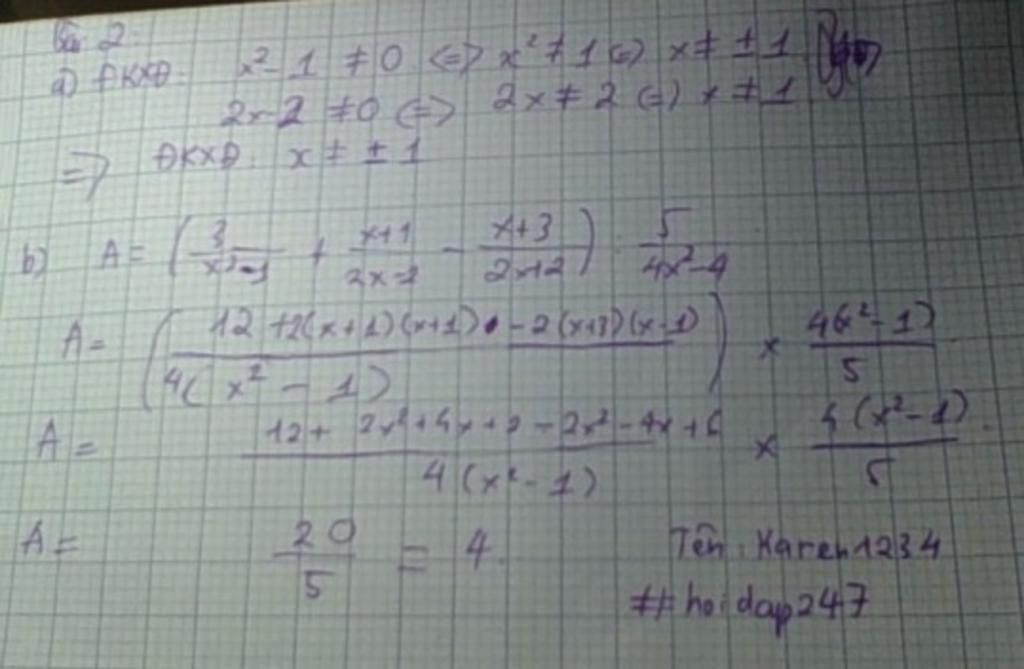 Bài 2
a) ĐKXĐ: x² - 1 ≠ 0 <=> x² ≠ 1 <=> x ≠ ± 1
2x - 2 ≠ 0 <=> 2x ≠ 2 <=> x ≠ 1
=> ĐKXĐ: x ≠ ± 1
b) A = ( 3/(x²-1) + (x+1)/(2x-2) - (x+3)/(2x+2) ) : 5/(4x²-4)
A = ( (12 + 2(x+1)(x+1) - 2(x+3)(x-1)) / (4(x² - 1)) ) × 4(x²-1)/5
A = (12 + 2x² + 4x + 2 - 2x² - 4x + 6) / (4(x² - 1)) × 4(x²-1)/5
A = 20/5 = 4.
Tên: Karen1234
##hoidap247